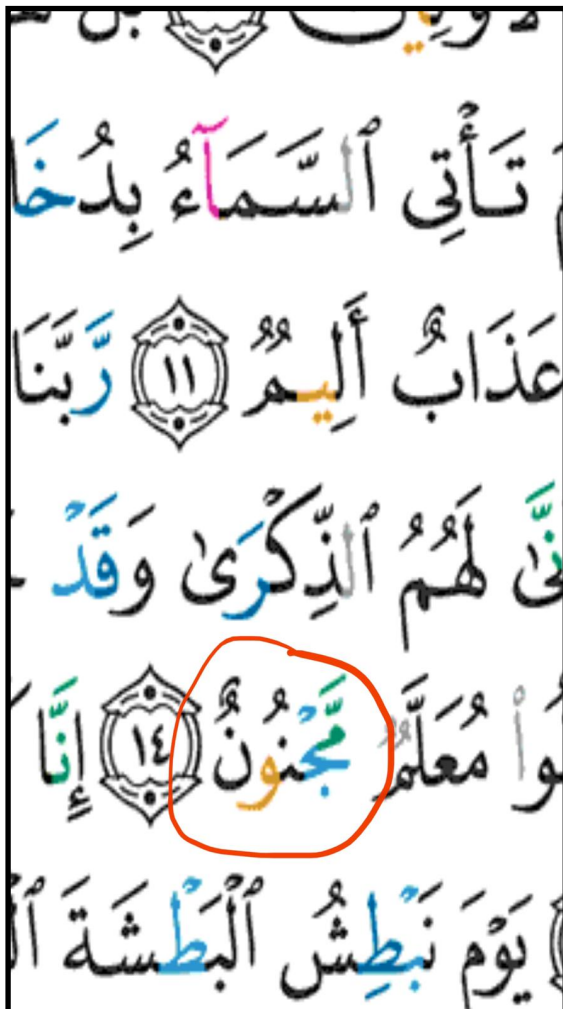 تَأۡتِى ٱلسَّمَآءُ بِدُخَا
عَذَابٌ أَلِيمٌ ١١ رَّبَّنَا
نَّىٰ لَهُمُ ٱلذِّكۡرَىٰ وَقَدۡ
لُوا۟ مُعَلَّمٌ مَّجۡنُونٌ ١٤ إِنَّا
يَوۡمَ نَبۡطِشُ ٱلۡبَطۡشَةَ ٱلۡ